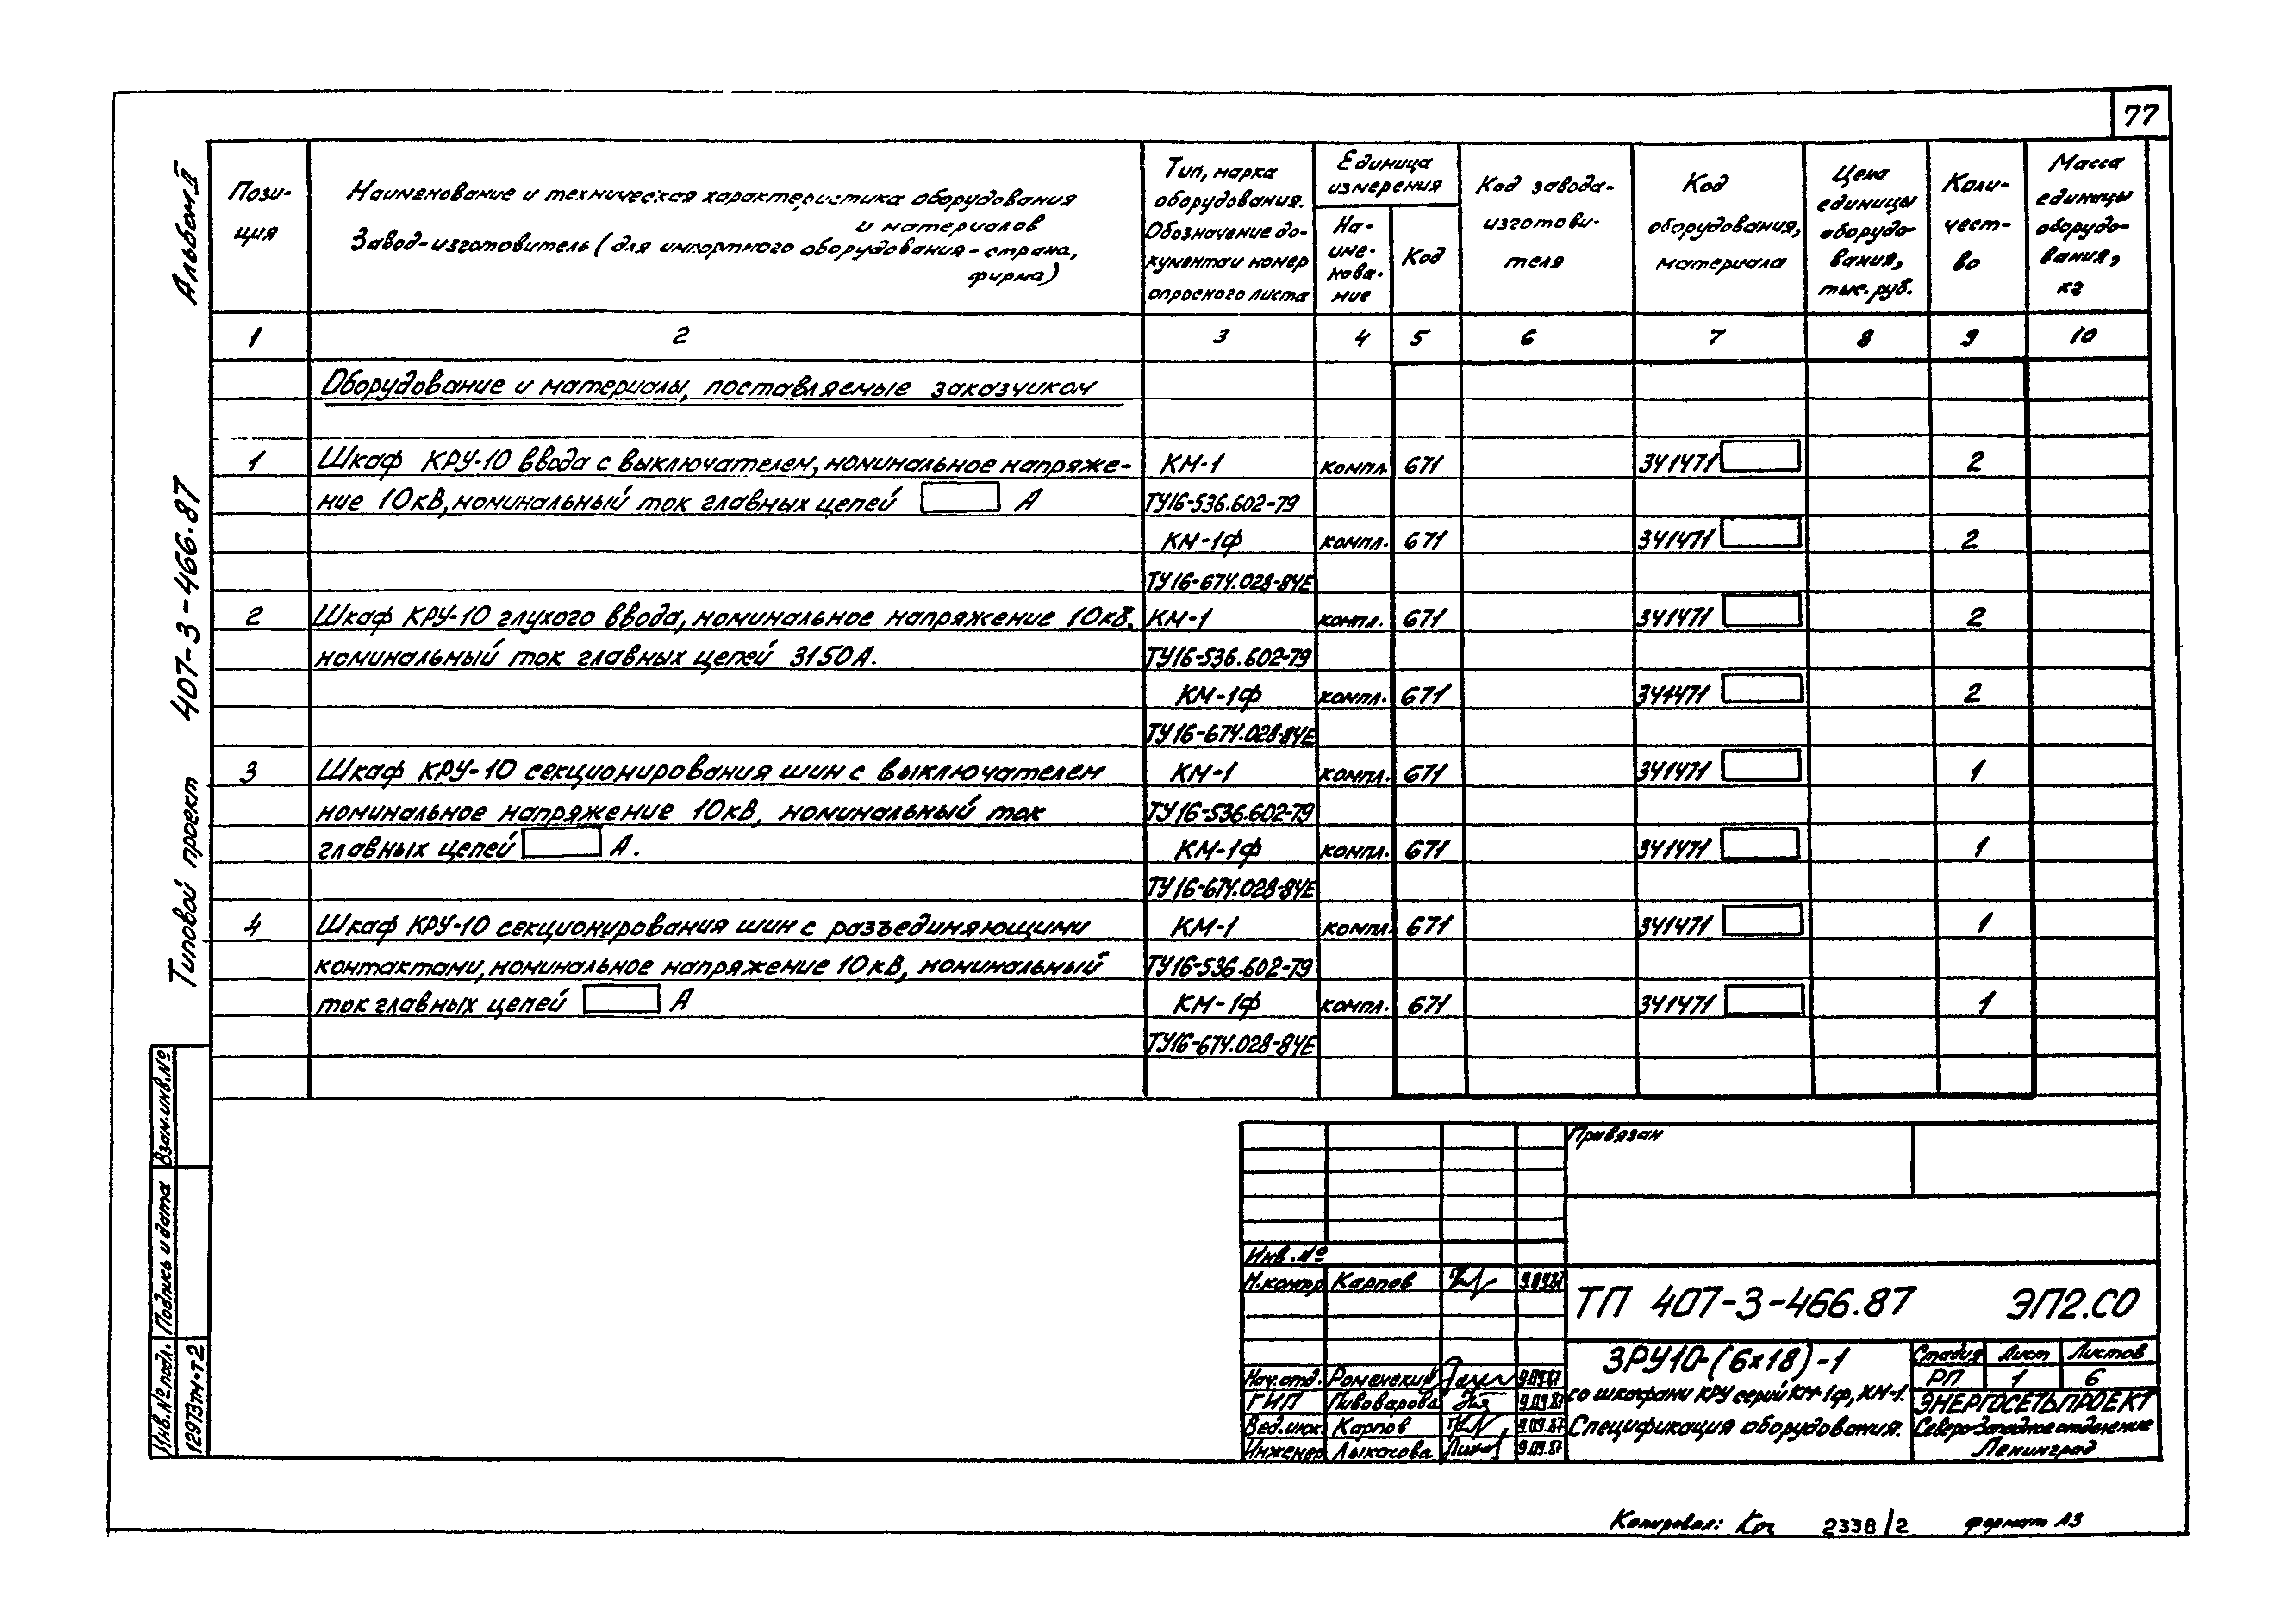 77
Альбом II
Типовой проект 407-3-466.87
Пози-
ция
Наименование и техническая характеристика оборудования
и материалов
Завод-изготовитель (для импортного оборудования - страна,
фирма)
Тип, марка
оборудования.
Обозначение до-
кумента и номер
опросного листа
Единица
измерения
На-
име-
нова-
ние
Код
Код завода-
изготови-
теля
Код
оборудования,
материала
Цена
единицы
оборудо-
вания,
тыс. руб.
Коли-
чест-
во
Масса
единицы
оборудо-
вания,
кг
1 2 3 4 5 6 7 8 9 10
Оборудование и материалы, поставляемые заказчиком
1 Шкаф КРУ-10 ввода с выключателем, номинальное напряже- КМ-1 компл. 671 341471 2
ние 10кВ, номинальный ток главных цепей А ТУ16-536.602-79
КМ-1Ф компл. 671 341471 2
ТУ16-674.028-84Е
2 Шкаф КРУ-10 глухого ввода, номинальное напряжение 10кВ, КМ-1 компл. 671 341471 2
номинальный ток главных цепей 3150А. ТУ16-536.602-79
КМ-1Ф компл. 671 341471 2
ТУ16-674.028-84Е
3 Шкаф КРУ-10 секционирования шин с выключателем КМ-1 компл. 671 341471 1
номинальное напряжение 10кВ, номинальный ток ТУ16-536.602-79
главных цепей А. КМ-1Ф компл. 671 341471 1
ТУ16-674.028-84Е
4 Шкаф КРУ-10 секционирования шин с разъединяющими КМ-1 компл. 671 341471 1
контактами, номинальное напряжение 10кВ, номинальный ТУ16-536.602-79
ток главных цепей А КМ-1Ф компл. 671 341471 1
ТУ16-674.028-84Е
Взам.инв.№
Подпись и дата
Инв.№ подл.
12973тм-т2
Привязан
Инв.№
Н.контр. Карпов 9.09.87
Нач.отд. Роменский 9.09.87
ГИП Пивоварова 9.09.87
Вед.инж. Карпов 9.09.87
Инженер Лыкасова 9.09.87
ТП 407-3-466.87 ЭП2.СО
ЗРУ10-(6х18)-1
со шкафами КРУ серий КМ-1ф, КМ-1.
Спецификация оборудования.
Стадия Лист Листов
РП 1 6
ЭНЕРГОСЕТЬПРОЕКТ
Северо-Западное отделение
Ленинград
Копировал: 2338/2 формат А3